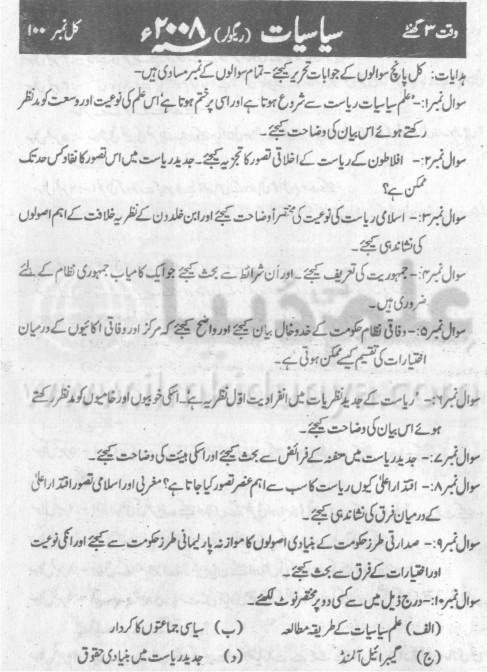 وقت ۳ گھنٹے سیاسیات (ریگولر) ۲۰۰۸ء کل نمبر ۱۰۰
ہدایات: کل پانچ سوالوں کے جوابات تحریر کیجئے۔ تمام سوالوں کے نمبر مساوی ہیں۔
سوال نمبر۱:۔ "علم سیاسیات ریاست سے شروع ہوتا ہے اور اسی پر ختم ہوتا ہے" اس علم کی نوعیت اور وسعت کو مدنظر
رکھتے ہوئے اس بیان کی وضاحت کیجئے۔
سوال نمبر۲:۔ افلاطون کے ریاست کے اخلاقی تصور کا تجزیہ کیجئے۔ جدید ریاست میں اس تصور کا نفاذ کس حد تک
ممکن ہے؟
سوال نمبر۳:۔ اسلامی ریاست کی نوعیت کی مختصراً وضاحت کیجئے اور ابن خلدون کے نظریہ خلافت کے اہم اصولوں
کی نشاندہی کیجئے۔
سوال نمبر۴:۔ جمہوریت کی تعریف کیجئے۔ اور اُن شرائط سے بحث کیجئے جو ایک کامیاب جمہوری نظام کے لئے
ضروری ہیں۔
سوال نمبر۵:۔ وفاقی نظام حکومت کے خدوخال بیان کیجئے اور واضح کیجئے کہ مرکز اور وفاقی اکائیوں کے درمیان
اختیارات کی تقسیم کیسے ممکن ہوتی ہے۔
سوال نمبر۶:۔ "ریاست کے جدید نظریات میں انفرادیت اوّل نظریہ ہے"۔ اسکی خوبیوں اور خامیوں کو مدنظر رکھتے
ہوئے اس بیان کی وضاحت کیجئے۔
سوال نمبر۷:۔ جدید ریاست میں مقننہ کے فرائض سے بحث کیجئے اور اسکی ہیئت کی وضاحت کیجئے۔
سوال نمبر۸:۔ اقتدار اعلیٰ کیوں ریاست کا سب سے اہم عنصر تصور کیا جاتا ہے؟ مغربی اور اسلامی تصور اقتدار اعلیٰ
کے درمیان فرق کی نشاندہی کیجئے۔
سوال نمبر۹:۔ صدارتی طرز حکومت کے بنیادی اصولوں کا موازنہ پارلیمانی طرز حکومت سے کیجئے اور انکی نوعیت
اور اختیارات کے فرق سے بحث کیجئے۔
سوال نمبر۱۰:۔ درج ذیل میں سے کسی دو پر مختصر نوٹ لکھئے۔
(الف) علم سیاسیات کے طریقہ مطالعہ (ب) سیاسی جماعتوں کا کردار
(ج) گیبرائیل آلمنڈ (د) جدید ریاست میں بنیادی حقوق